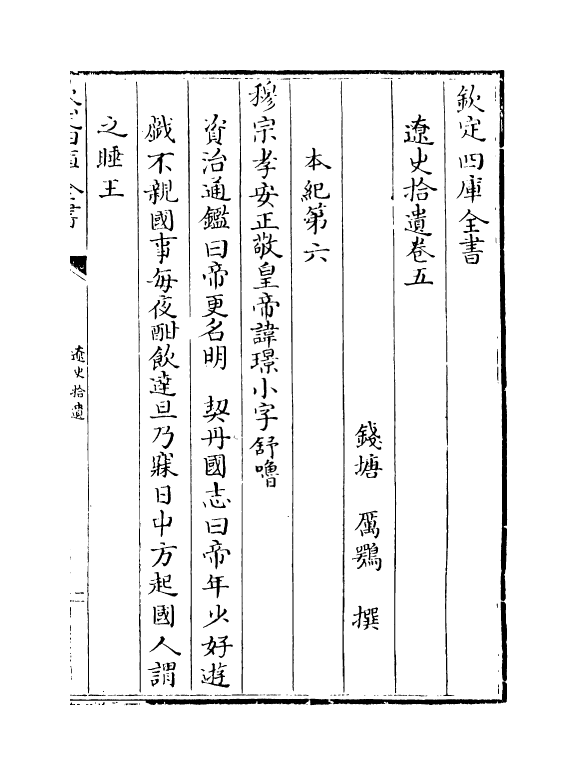 欽定四庫全書
遼史拾遺卷五
錢塘 厲鶚 撰
本紀第六
穆宗孝安正敬皇帝諱璟小字舒嚕
資治通鑑曰帝更名明 契丹國志曰帝年少好遊
戲不親國事每夜酣飲達旦乃寐日中方起國人謂
之睡王
遼史拾遺
一